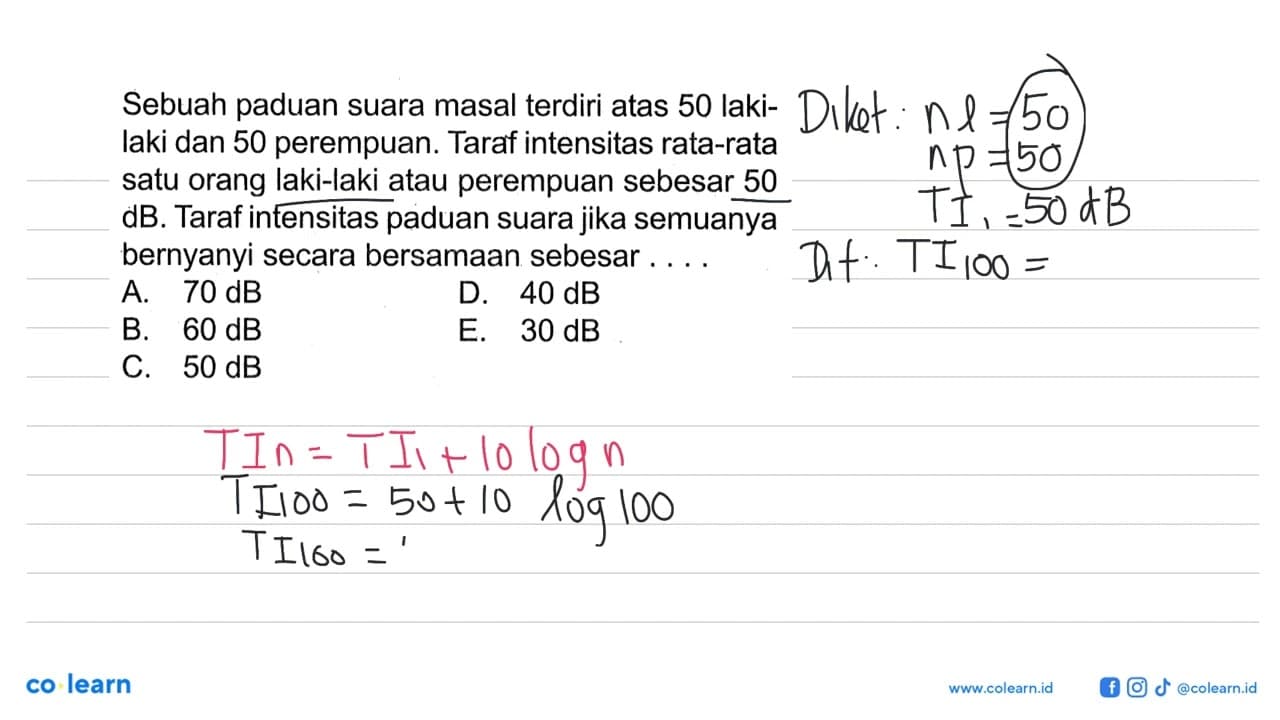 Sebuah paduan suara masal terdiri atas 50 laki-
laki dan 50 perempuan. Taraf intensitas rata-rata
satu orang laki-laki atau perempuan sebesar 50
dB. Taraf intensitas paduan suara jika semuanya
bernyanyi secara bersamaan sebesar . . . .
A. 70 dB D. 40 dB
B. 60 dB E. 30 dB
C. 50 dB
Diket: nl = 50
np = 50
TI1 = 50 dB
Dit: TI100 =
TIn = TI1 + 10 log n
TI100 = 50 + 10 log 100
TI100 =
co learn
www.colearn.id
@colearn.id